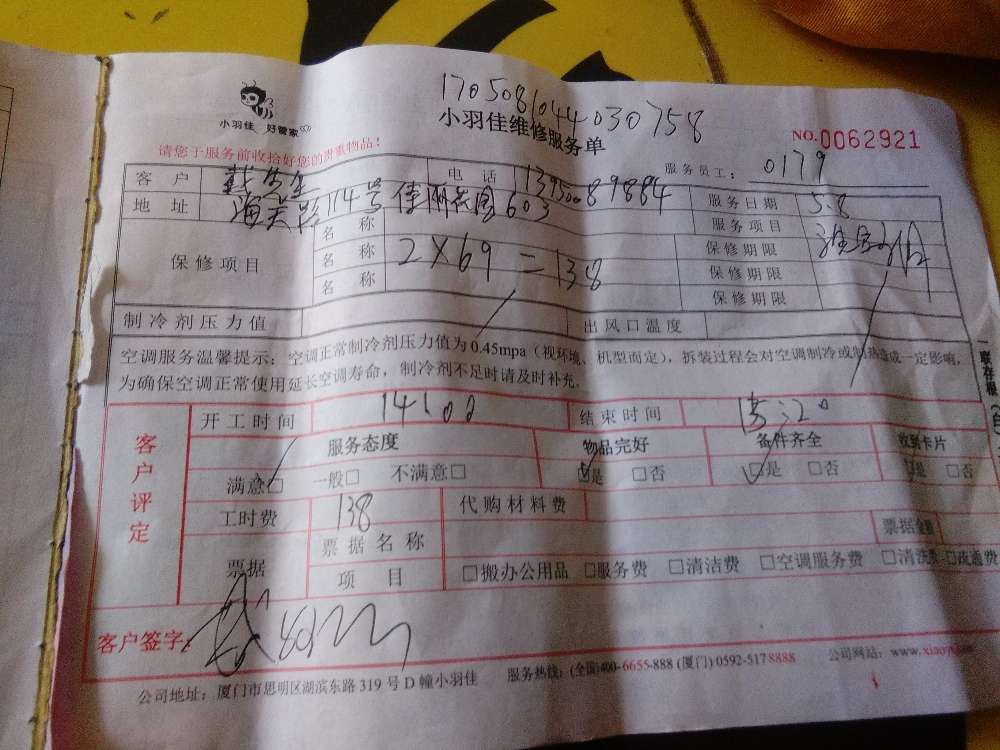 170508104403​0758
小羽佳 好管家
小羽佳维修服务单
NO.0062921
请您于服务前收拾好您的贵重物品！
服务员工：0179
客户 戴先生 电话 13950089884 服务日期 5.8
地址 海天路114号佳丽花园603 服务项目
保修项目 名称 2×69=138 保修期限
名称 保修期限
名称 保修期限
制冷剂压力值 出风口温度
空调服务温馨提示：空调正常制冷剂压力值为0.45mpa（视环境、机型而定），拆装过程会对空调制冷或制热造成一定影响，
为确保空调正常使用延长空调寿命，制冷剂不足时请及时补充。
一联存根
客户评定
开工时间 14:00 结束时间 15:20
服务态度 物品完好 备件齐全 收到卡片
满意□ 一般□ 不满意□ □是 □否 □是 □否 □是 □否
工时费 138 代购材料费
票据 票据名称 票据金额
项目 □搬办公用品 □服务费 □清洁费 □空调服务费 □清洗费 □疏通费
客户签字：
公司地址：厦门市思明区湖滨东路319号D幢小羽佳 服务热线：(全国)400-6655-888 (厦门) 0592-5178888 公司网站：www.xiao